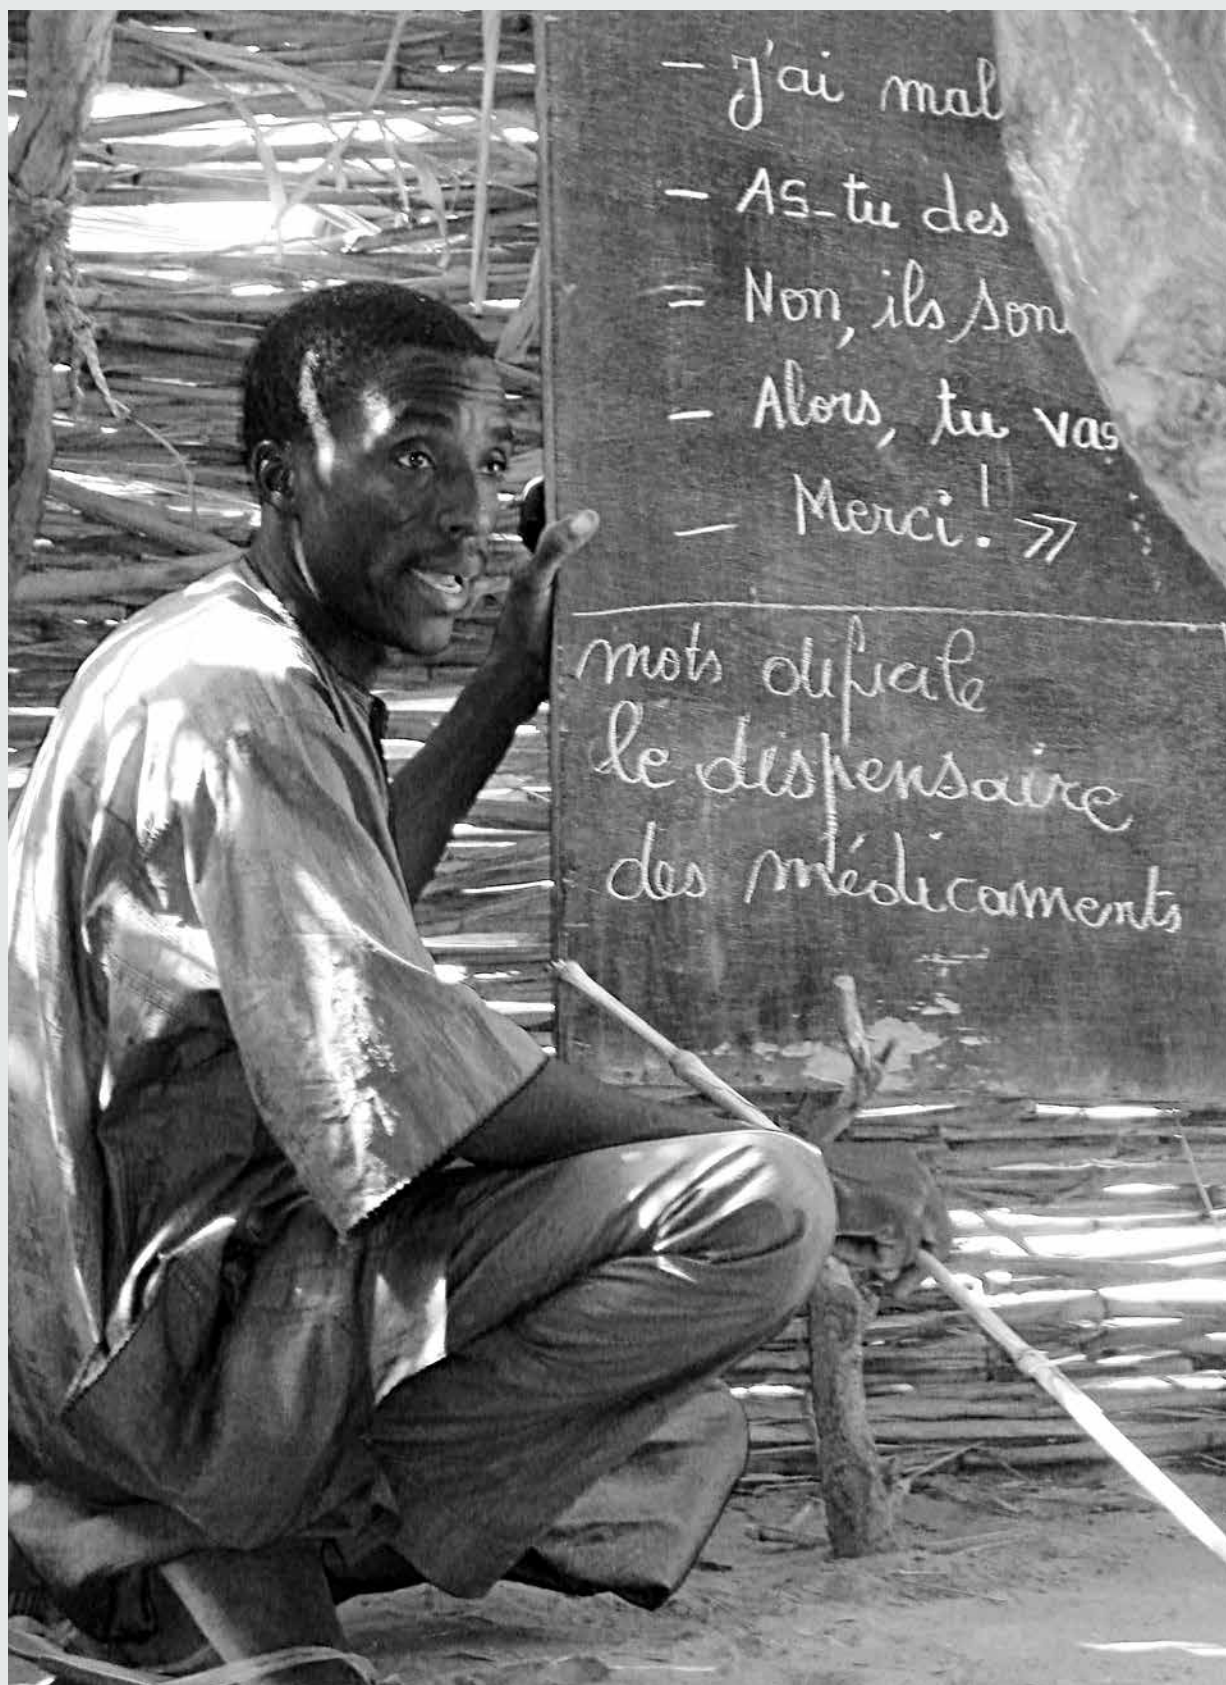 - J'ai mal
- As-tu des
= Non, ils son
- Alors, tu vas
- Merci! »
mots dificile
le dispensaire
des médicaments